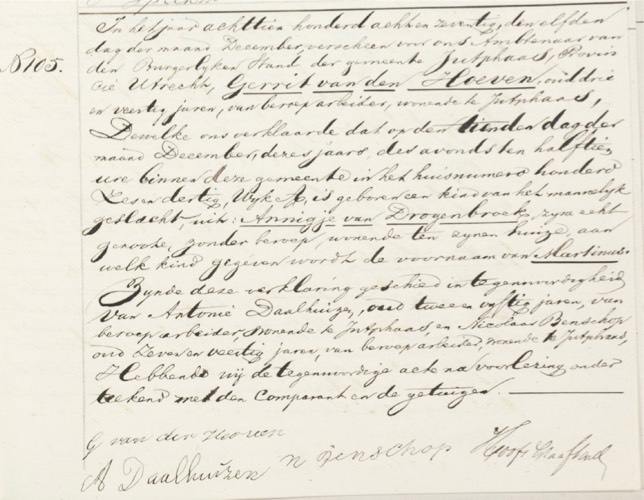 In het jaar achttien honderd acht en zeventig, den elfden
dag der maand December, verscheen voor ons Ambtenaar van
No 105. den Burgerlyken Stand der gemeente Jutphaas, Provin
cie Utrecht, Gerrit van den Hoeven, oud drie
en veertig jaren, van beroep arbeider, wonende te Jutphaas,
Dewelke ons verklaarde dat op den tienden dag der
maand December, dezes jaars, des avonds ten half tien
ure binnen deze gemeente in het huis numero honderd
Zes en dertig, Wyk A, is geboren een kind van het mannelyk
geslacht, uit: Annigje van Droyenbroek, zyne echt
genoote, zonder beroep, wonende ten zynen huize, aan
welk kind gegeven wordt de voornaam van Martinus.
Zynde deze verklaring geschied in tegenwoordigheid
van Antonie Daalhuizen, oud twee en vyftig jaren, van
beroep arbeider, wonende te Jutphaas, en Nicolaas Benschop
oud Zeven en veertig jaren, van beroep arbeider, wonende te Jutphaas,
Hebbende wij de tegenwoordige acte na voorlezing onder
teekend met den Comparant en de getuigen.
G van den Hoeven
A Daalhuizen n benschop